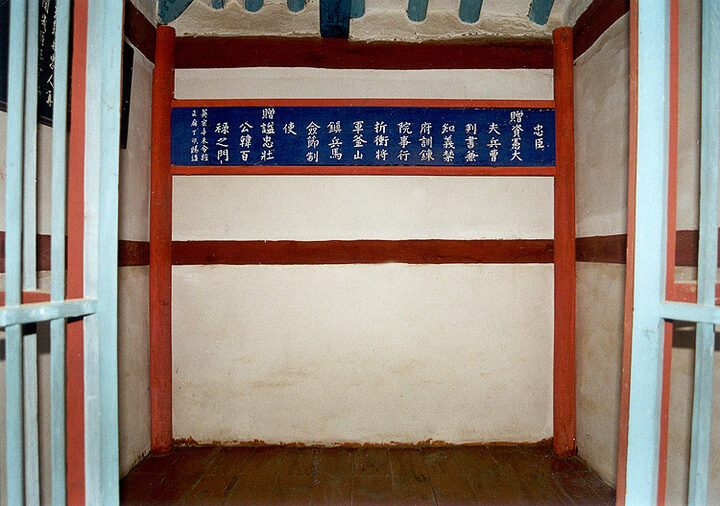 忠臣
贈資憲大
夫兵曹
判書兼
知義禁
府訓鍊
院事行
折衝將
軍釜山
鎭兵馬
僉節制
使
贈諡忠壯
公韓百
祿之門
英宗辛未命旌